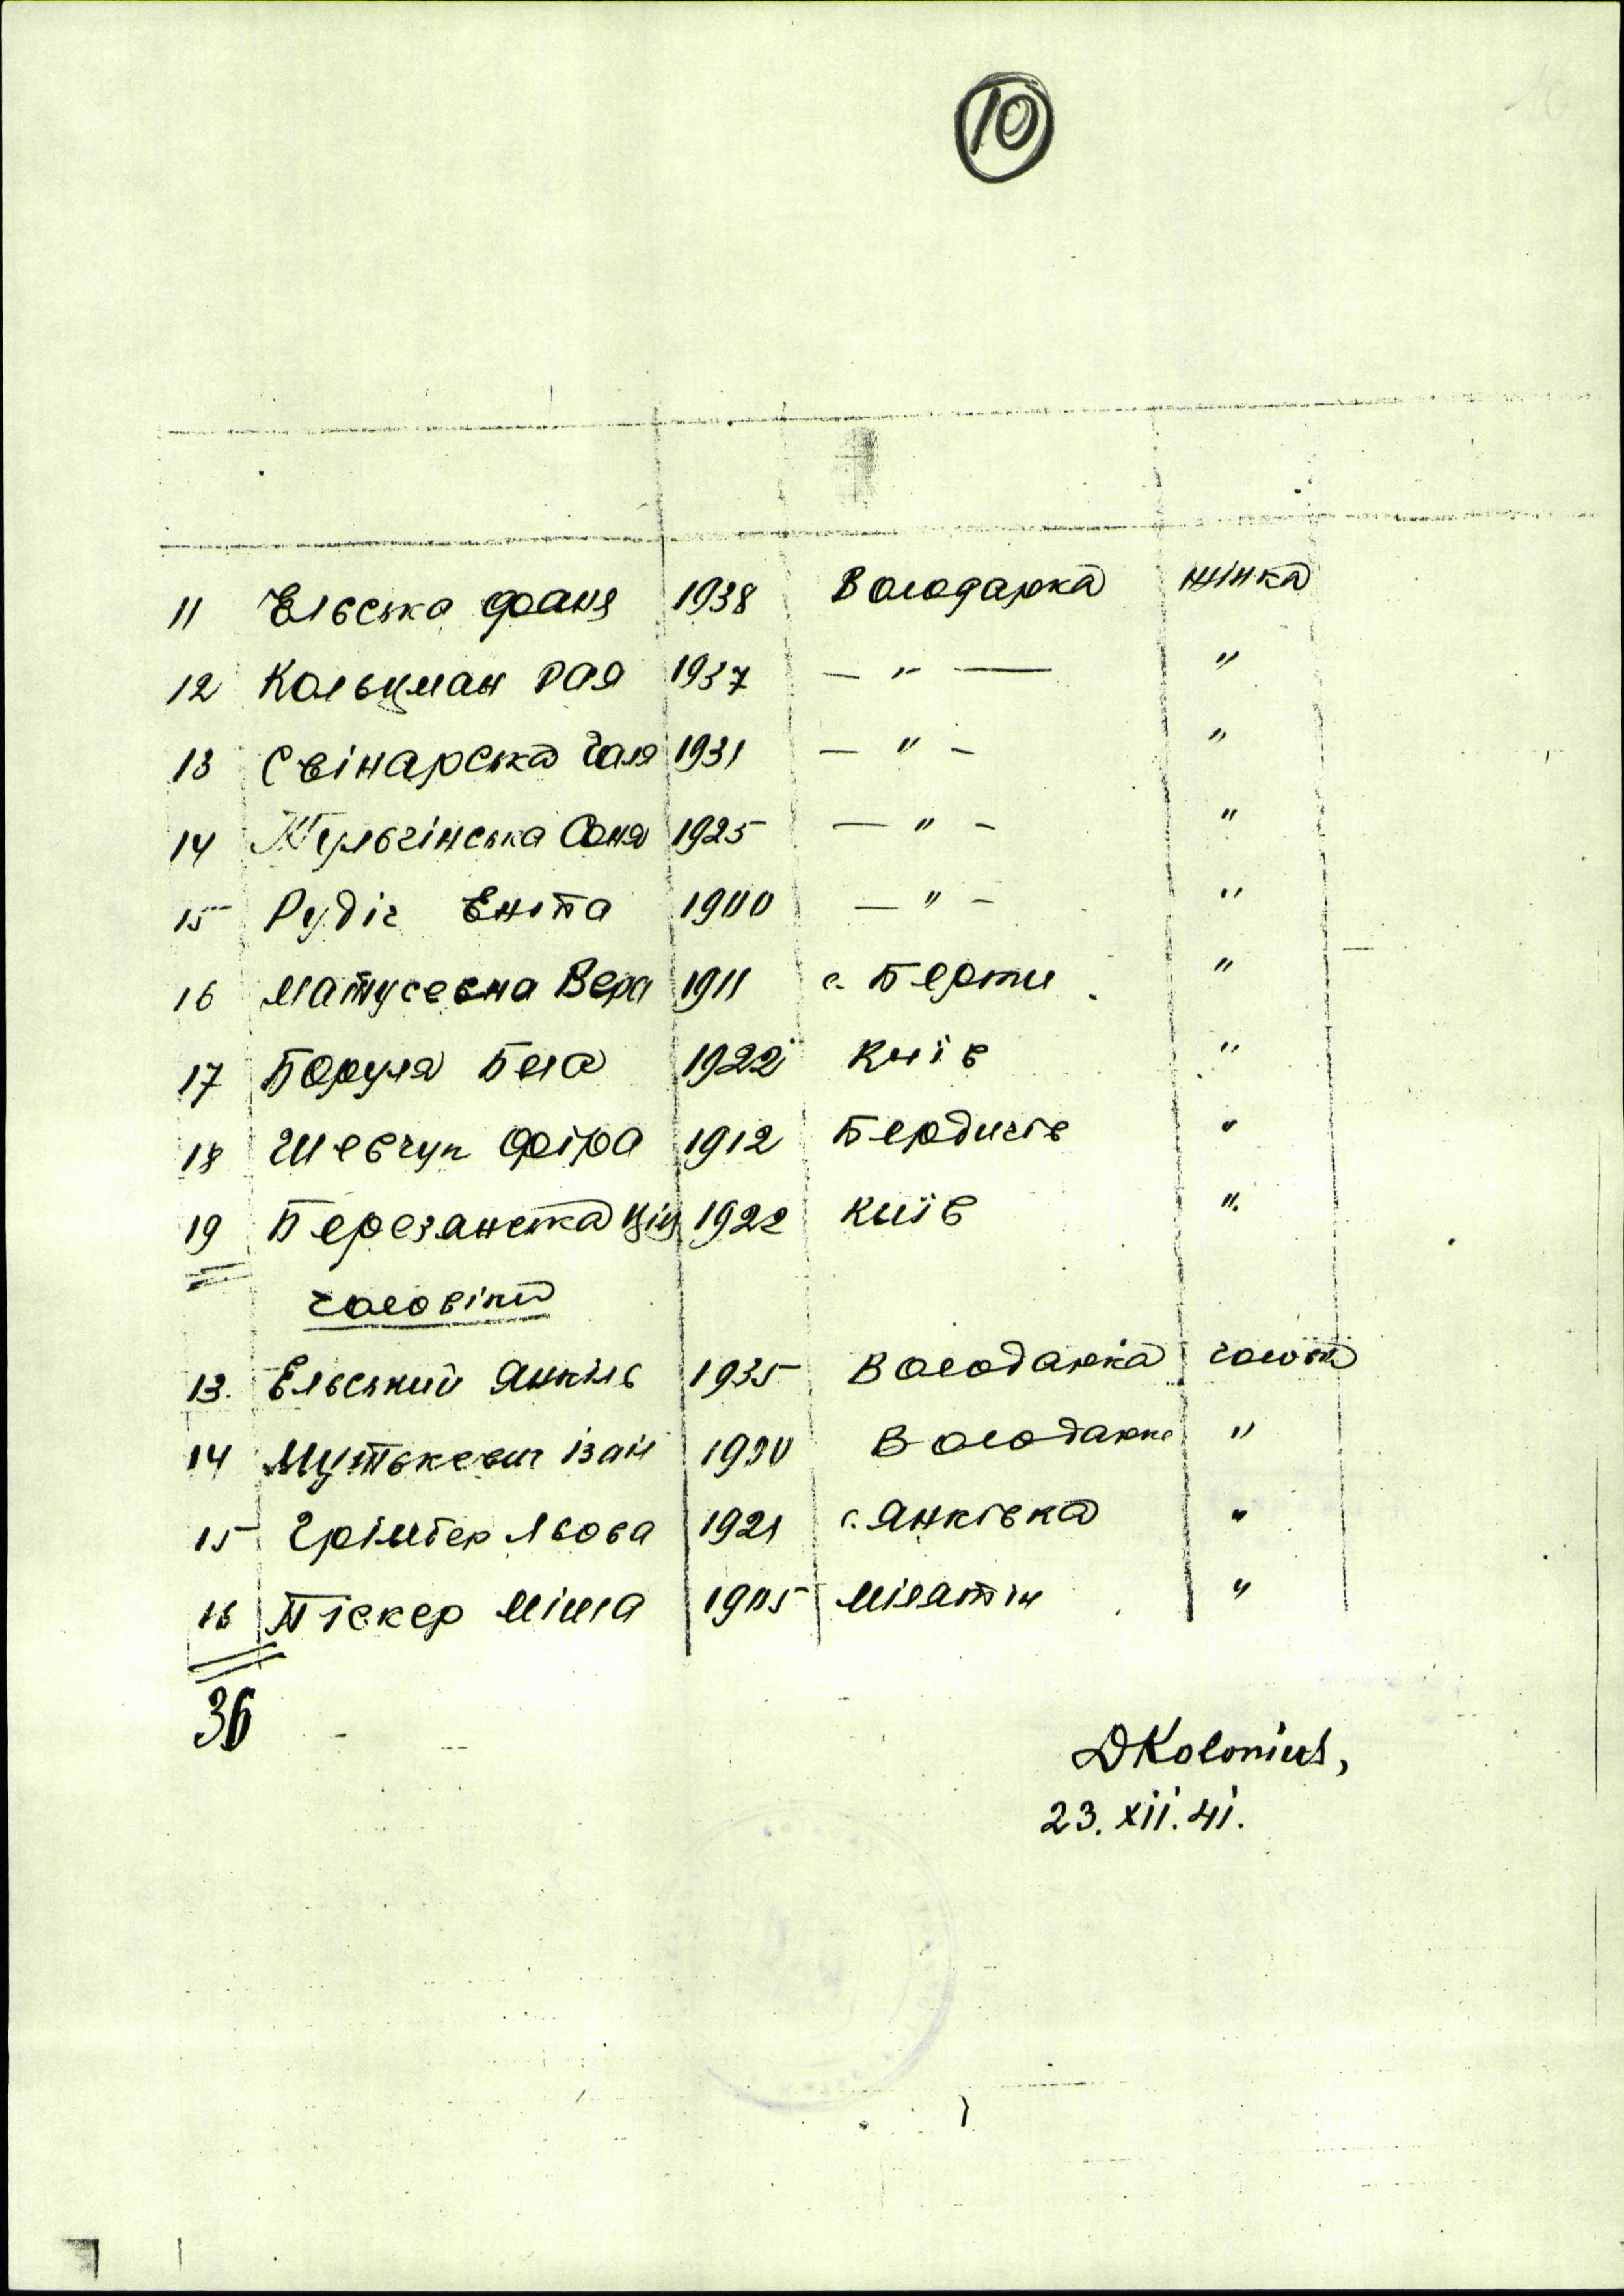 10
11 Ельська Фаня 1938 Володарка жінка
12 Кольцман Рая 1937 — " — "
13 Свінарська Галя 1931 — " - "
14 Тульчінська Соня 1925 — " - "
15 Рудіч Ента 1900 — " - "
16 Матусевна Вера 1911 с. "
17 Боруля Бела 1922 Київ "
18 Шевчук Фіра 1912 Бердичів "
19 Березанська 1922 Київ "
чоловіки
13. Ельський Янкіль 1935 Володарка
14 Мутькевич 1930 Володарка "
15 Льова 1921 с. Янківка "
16 Піскер Міша 1905 Мілятін "
36
DKolonius,
23. XII. 41.